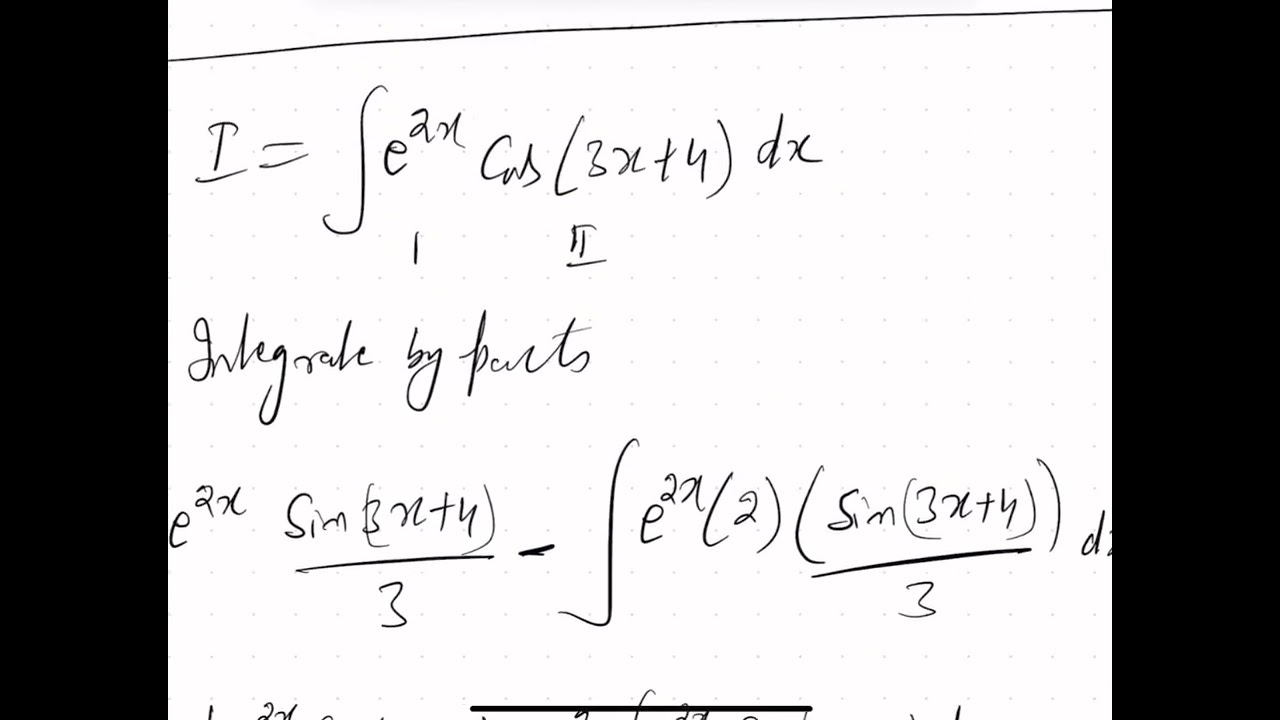 I = ∫ e^{2x} Cos (3x+4) dx
I II
Integrate by parts
e^{2x} Sin(3x+4)/3 - ∫ e^{2x} (2) (Sin(3x+4)/3) dx